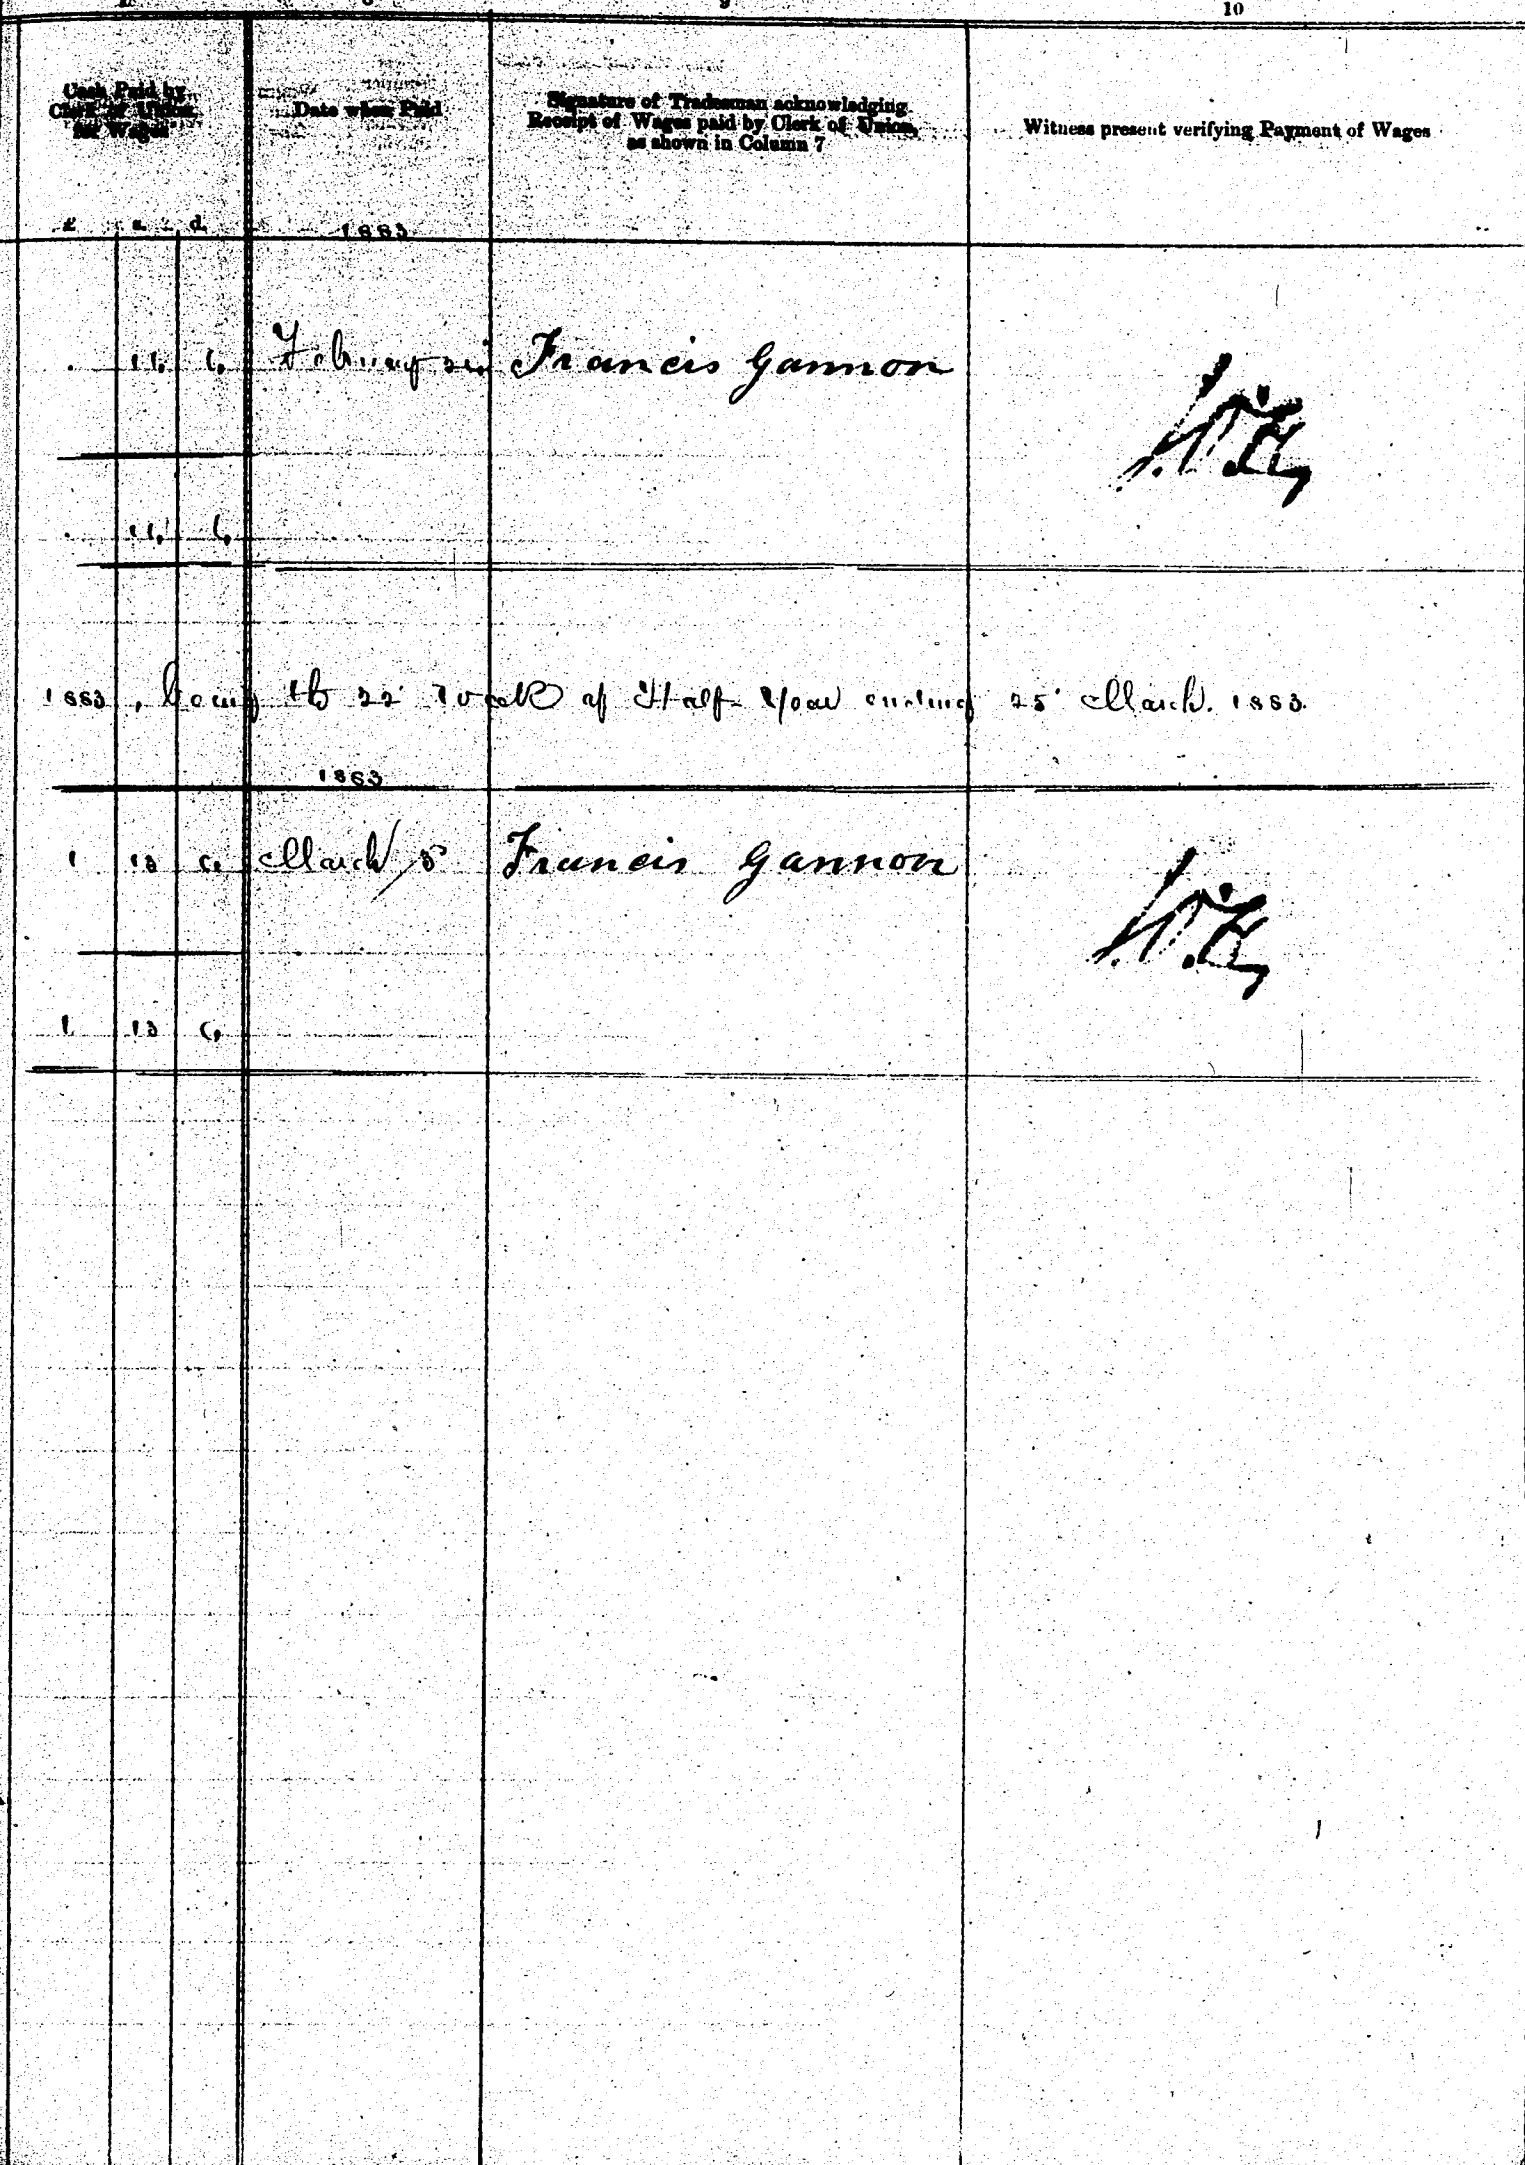 9 10
Cash Paid by Clerk of Union for Wages
Date when Paid
Signature of Tradesman acknowledging Receipt of Wages paid by Clerk of Union, as shown in Column 7
Witness present verifying Payment of Wages
£ s. d. 1883
11 6 February Francis Gannon
11 6
1883, being the 22 Week of Half-Year ending 25 March. 1883.
1883
1 13 6 March 5 Francis Gannon
1 13 6